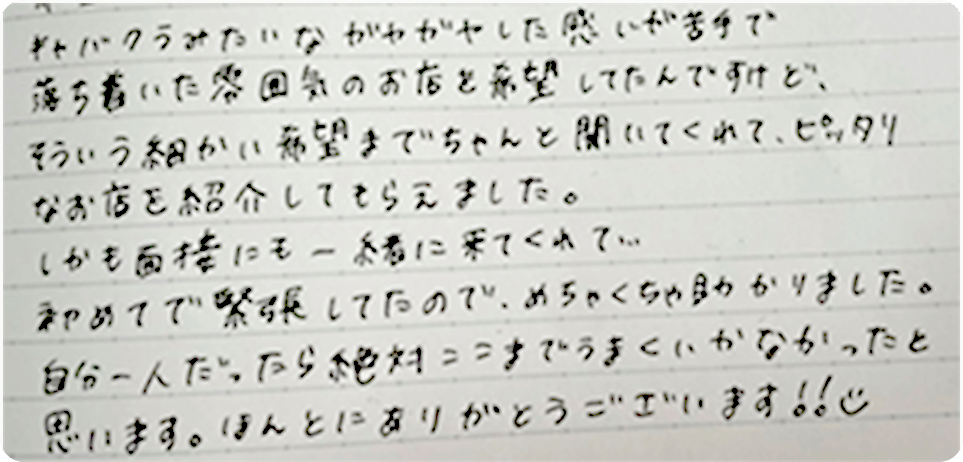 キャバクラみたいな ガヤガヤした感じが苦手で
落ち着いた雰囲気のお店を希望してたんですけど、
そういう細かい希望までちゃんと聞いてくれて、ピッタリ
なお店を紹介してもらえました。
しかも面接にも一緒に来てくれて…
初めてで緊張してたので、めちゃくちゃ助かりました。
自分一人だったら絶対ここまでうまくいかなかったと
思います。ほんとにありがとうございます!!